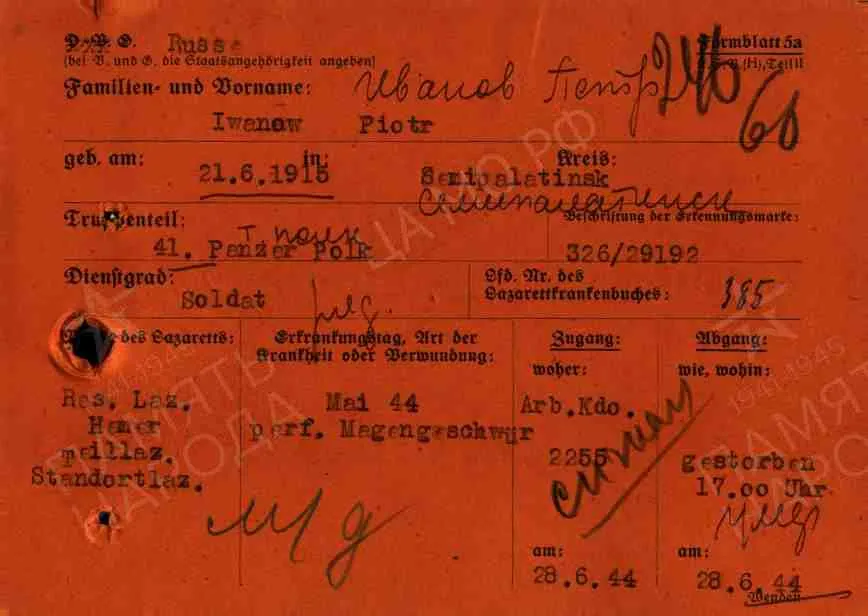 D. V. G. Russe
(bei V. und G. die Staatsangehörigkeit angeben)
Formblatt 5a
(H), Teil II
Familien- und Vorname: Иванов Петр
246
60
Iwanow Piotr
geb. am: 21.6.1915 in: Semipalatinsk Kreis:
Семипалатинск
Truppenteil: Beschriftung der Erkennungsmarke:
Т полк
41. Panzer Polk 326/29192
Dienstgrad: Lfd. Nr. des
Lazarettkrankenbuches: 385
Soldat
des Lazaretts: Erkrankungstag, Art der
Krankheit oder Verwundung: Zugang: Abgang:
woher: wie, wohin:
Res. Laz. Mai 44 Arb.Kdo.
Hemer perf. Magengeschwür
Teillaz. 2255 gestorben
Standortlaz. 17.oo Uhr
умер
am: am:
28.6.44 28.6.44
Wenden
ПАМЯТЬ
НАРОДА
1941-1945
ЦАМО РФ
1941-1945
ПАМЯТЬ
НАРОДА